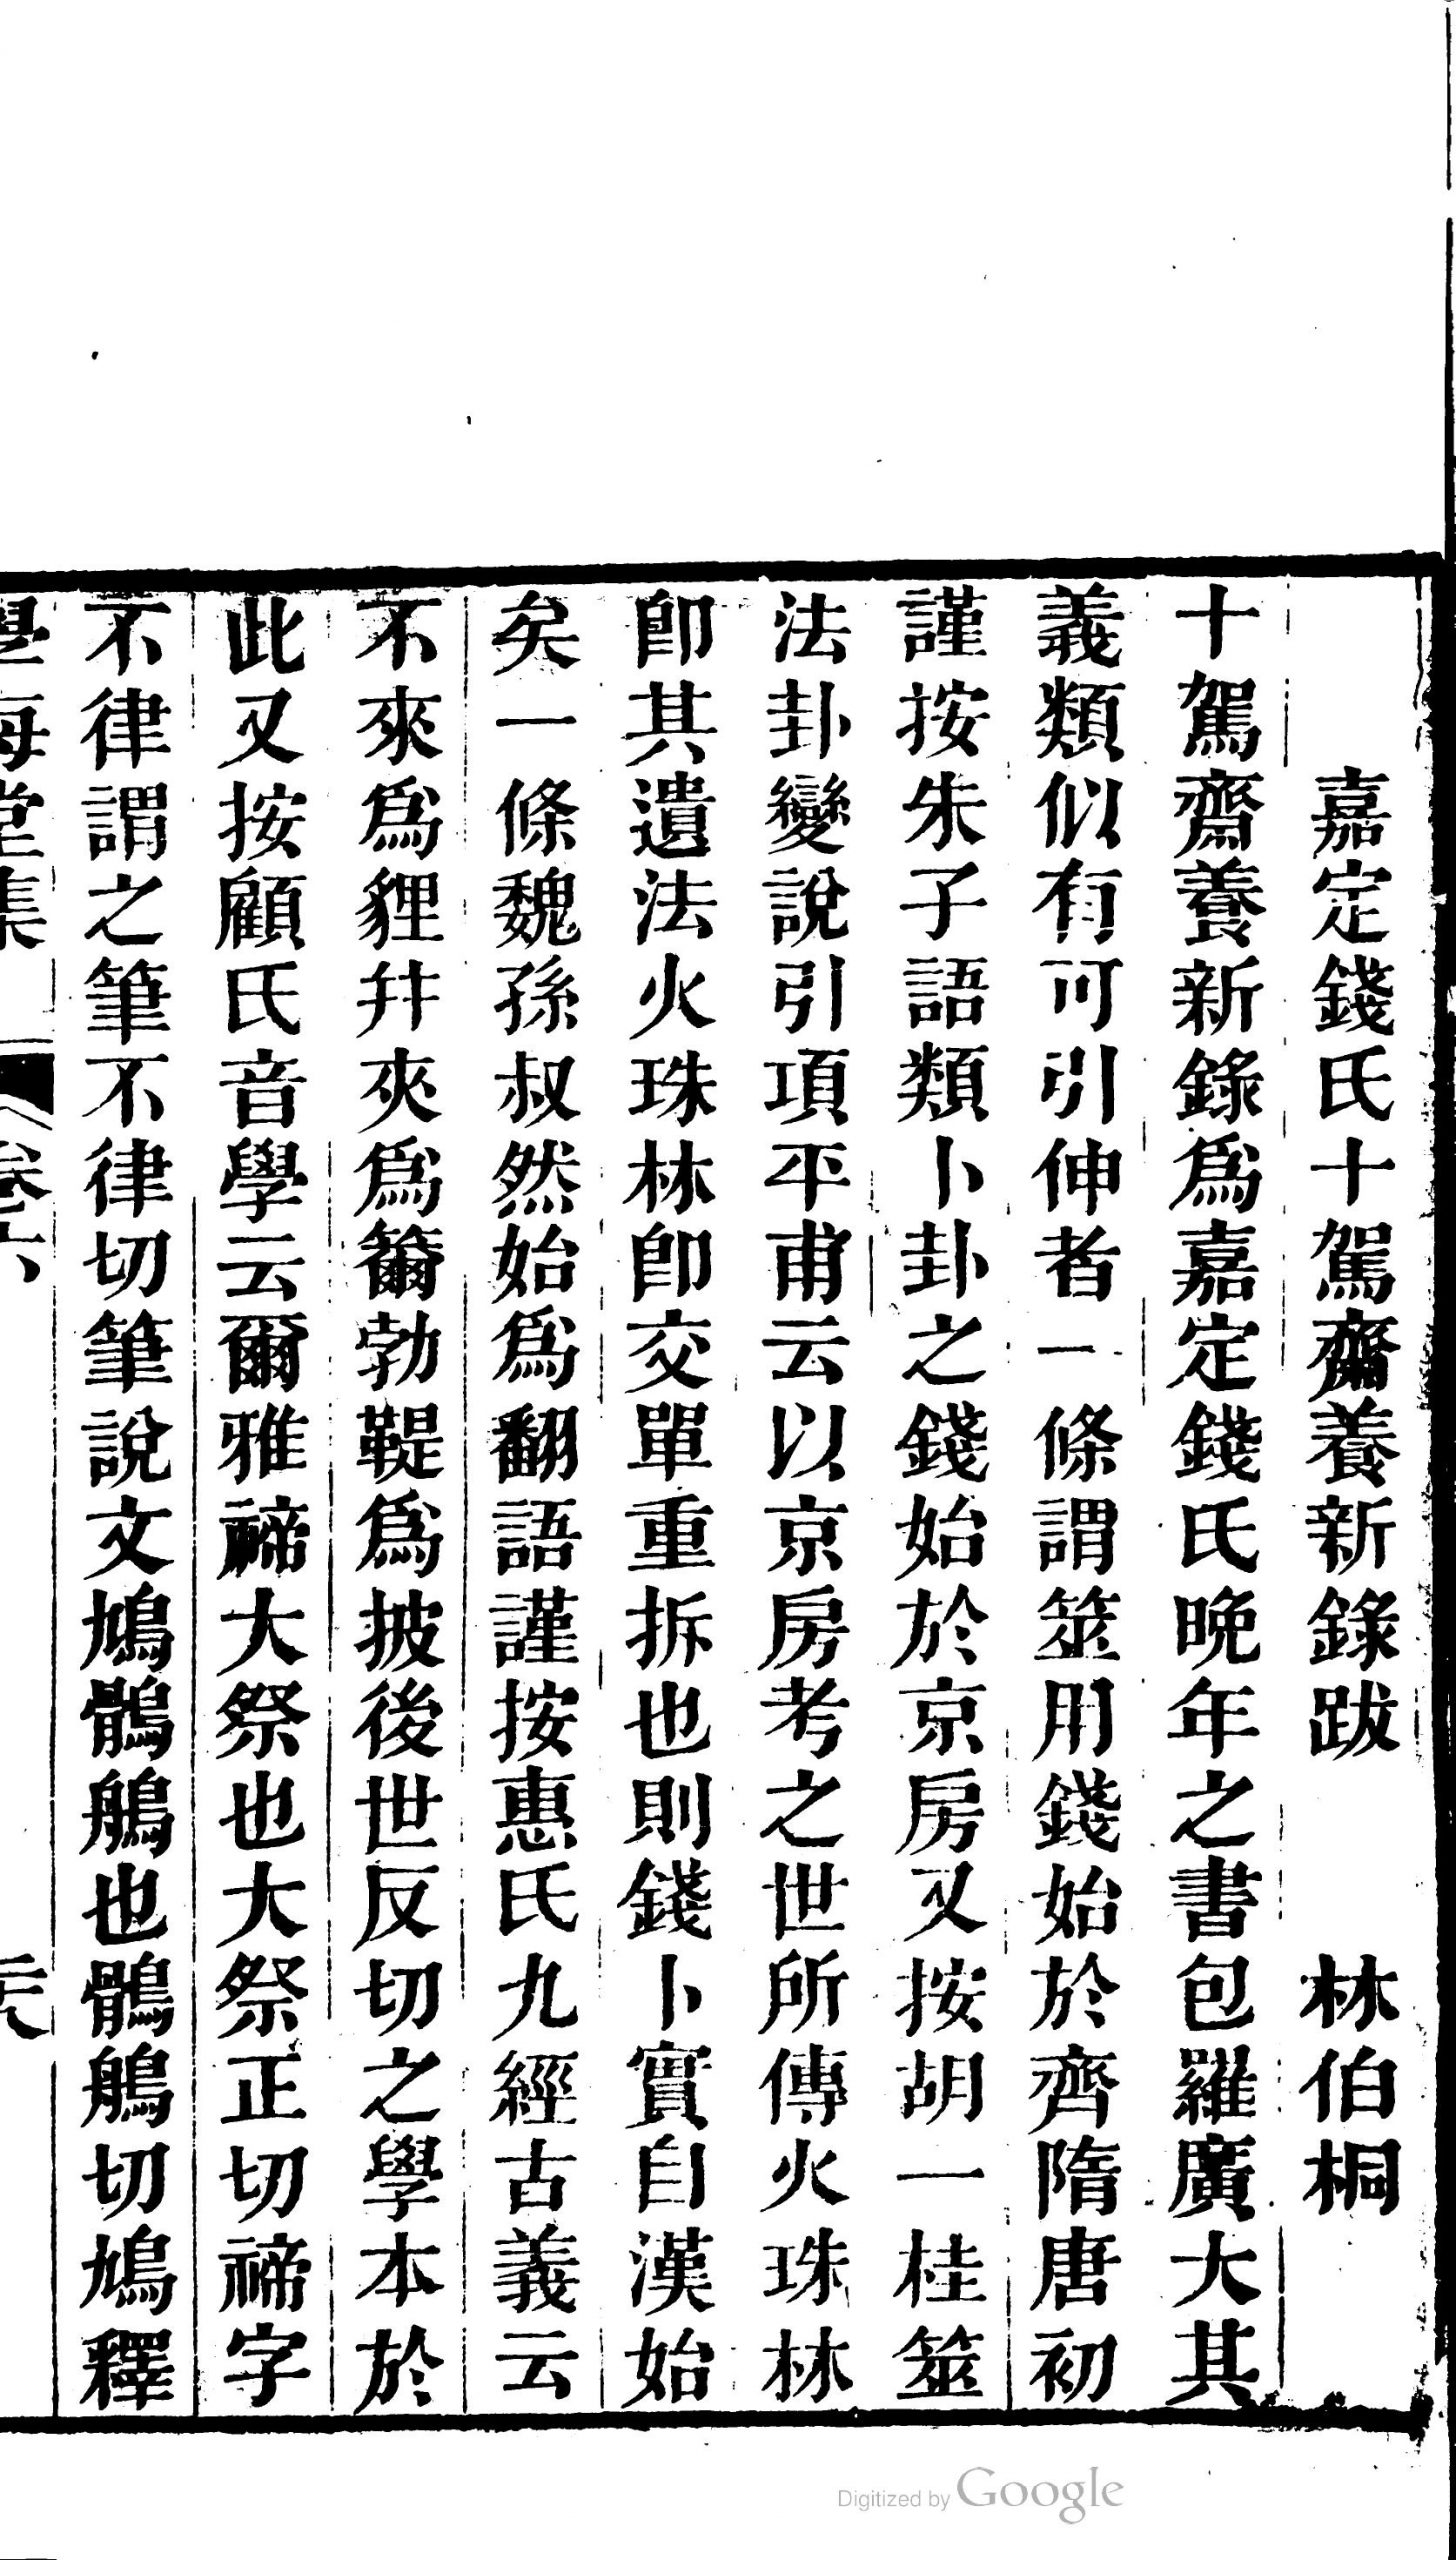 嘉定錢氏十駕齋養新錄跋　　林伯桐
十駕齋養新錄爲嘉定錢氏晩年之書包羅廣大其
義類似有可引伸者一條謂筮用錢始於齊隋唐初
謹按朱子語類卜卦之錢始於京房又按胡一桂筮
法卦變說引項平甫云以京房考之世所傳火珠林
卽其遺法火珠林卽交單重拆也則錢卜實自漢始
矣一條魏孫叔然始爲翻語謹按惠氏九經古義云
不來爲貍幷夾爲籋勃鞮爲披後世反切之學本於
此又按顧氏音學云爾雅禘大祭也大祭正切禘字
不律謂之筆不律切筆說文鳩鶻鵃也鶻鵃切鳩釋
學海堂集　卷六　　天
Digitized by Google